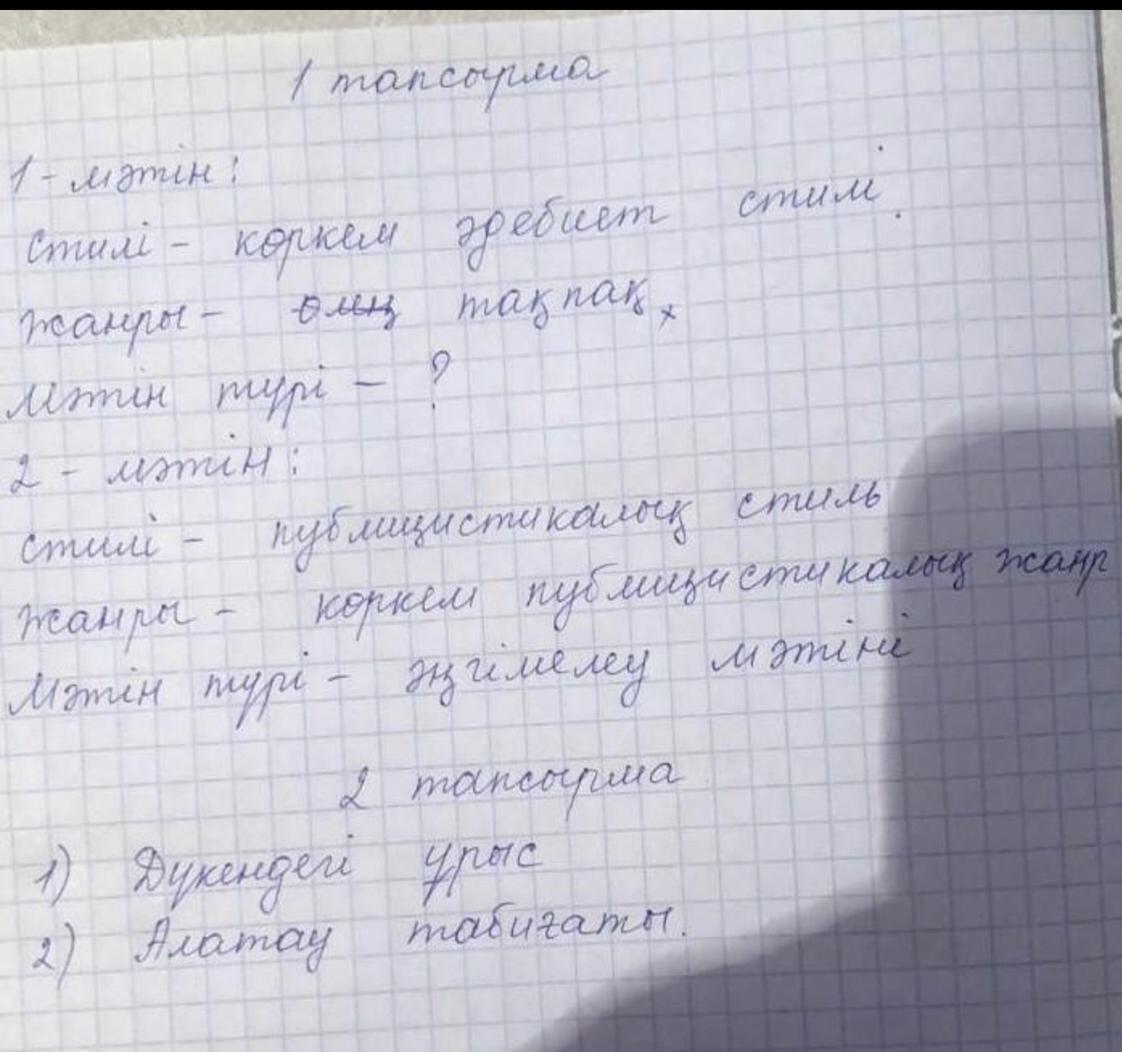 1 тапсырма
1 - мәтін:
Стилі - көркем әдебиет стилі.
Жанры - өлең тақпақ
Мәтін түрі - ?
2 - мәтін:
Стилі - публицистикалық стиль
Жанры - көркем публицистикалық жанр
Мәтін түрі - әңгімелеу мәтіні
2 тапсырма
1) Дүкендегі ұрыс
2) Алатау табиғаты.